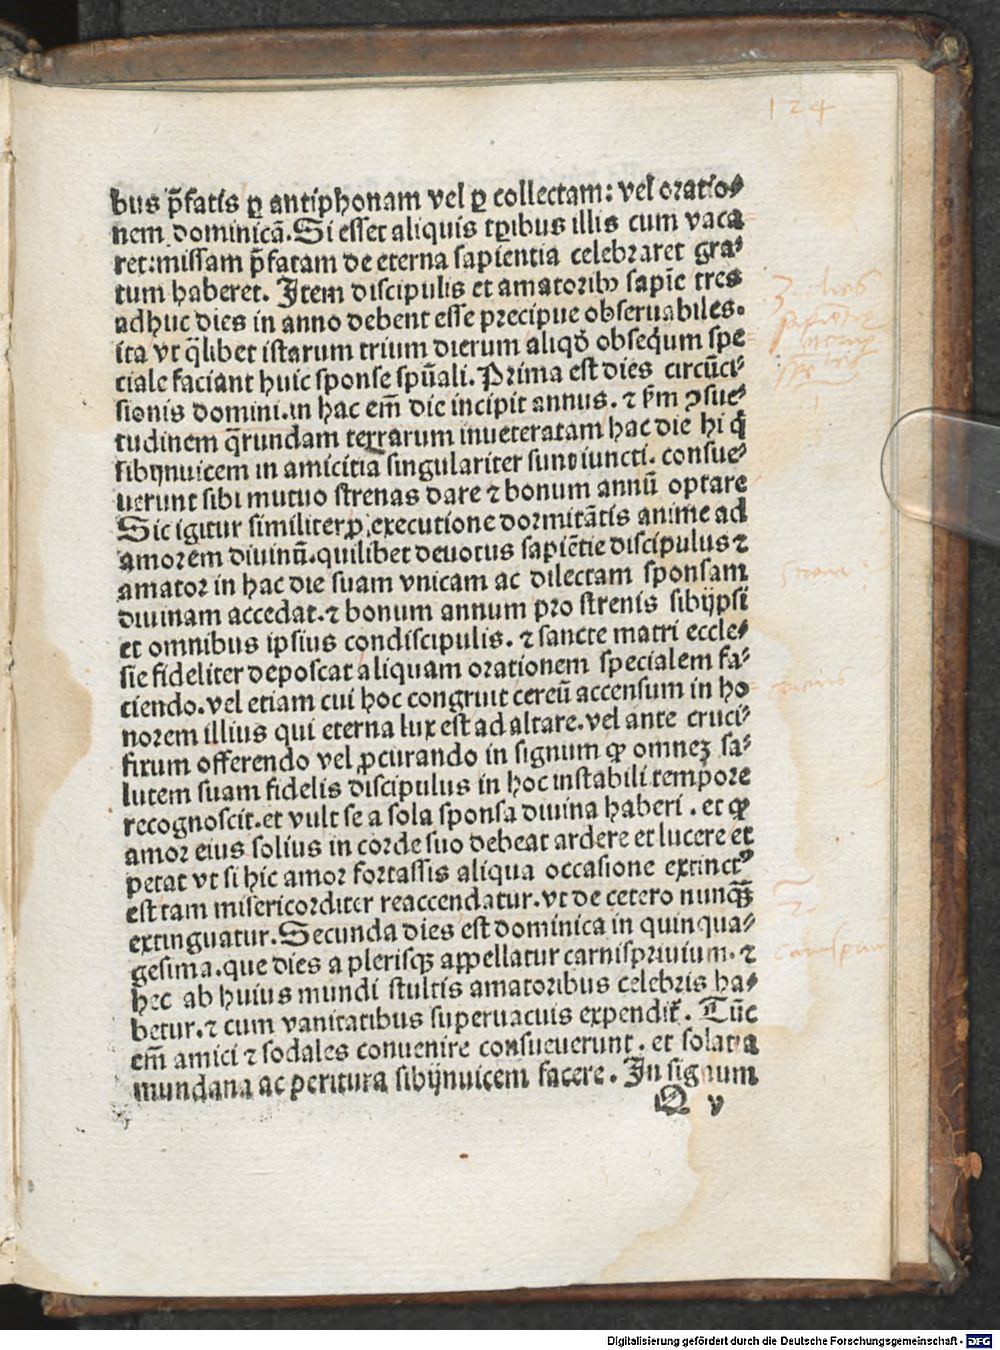 124
bus p̄fatis ꝑ antiphonam vel ꝑ collectam: vel oratio⸗
nem dominicā. Si esset aliquis tꝑibus illis cum vaca
ret: missam p̄fatam de eterna sapientia celebraret gra⸗
tum haberet. Item discipulis et amatoribꝰ sapīe tres
adhuc dies in anno debent esse precipue obseruabiles.
ita vt q̄libet istarum trium dierum aliqđ obseq̄um spe
ciale faciant huic sponse spūali. Prima est dies circūci⸗
sionis domini. in hac em̄ die incipit annus. ⁊ ẜm ꝯsue⸗
tudinem q̄rundam terrarum inueteratam hac die hi q̄
sibijnuicem in amicitia singulariter sunt iuncti. consue⸗
uerunt sibi mutuo strenas dare ⁊ bonum annū optare
Sic igitur similiter ꝓ executione dormitātis anime ad
amorem diuinū. quilibet deuotus sapiētie discipulus ⁊
amator in hac die suam vnicam ac dilectam sponsam
diuinam accedat. ⁊ bonum annum pro strenis sibijpsi
et omnibus ipsius condiscipulis. ⁊ sancte matri eccle⸗
sie fideliter deposcat aliquam orationem specialem fa⸗
ciendo. vel etiam cui hoc congruit cereū accensum in ho
norem illius qui eterna lux est ad altare. vel ante cruci⸗
fixum offerendo vel ꝓcurando in signum ꝙ omnez sa⸗
lutem suam fidelis discipulus in hoc instabili tempore
recognoscit. et vult se a sola sponsa diuina haberi. et ꝙ
amor eius solius in corde suo debeat ardere et lucere et
petat vt si hic amor fortassis aliqua occasione extinctꝰ
est tam misericorditer reaccendatur. vt de cetero nunqꝫ
extinguatur. Secunda dies est dominica in quinqua⸗
gesima. que dies a plerisqꝫ appellatur carnispriuium. ⁊
hec ab huius mundi stultis amatoribus celebris ha⸗
betur. ⁊ cum vanitatibus superuacuis expendit᷑. Tūc
em̄ amici ⁊ sodales conuenire consueuerunt. et solatia
mundana ac peritura sibijnuicem facere. In signum
Q v
Digitalisierung gefördert durch die Deutsche Forschungsgemeinschaft - DFG